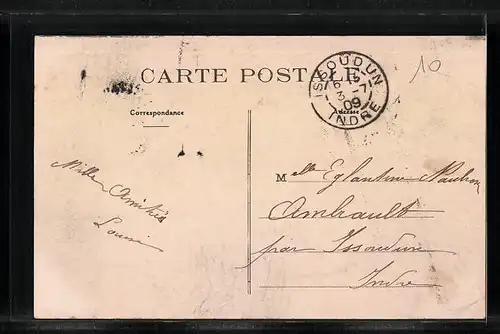 CARTE POSTALE
ISSOUDUN
3 -7
09
INDRE
10
Correspondance
Adresse
Mille Amitiés
Louise
Mlle Eglantine
Ambrault
par Issoudun
Indre